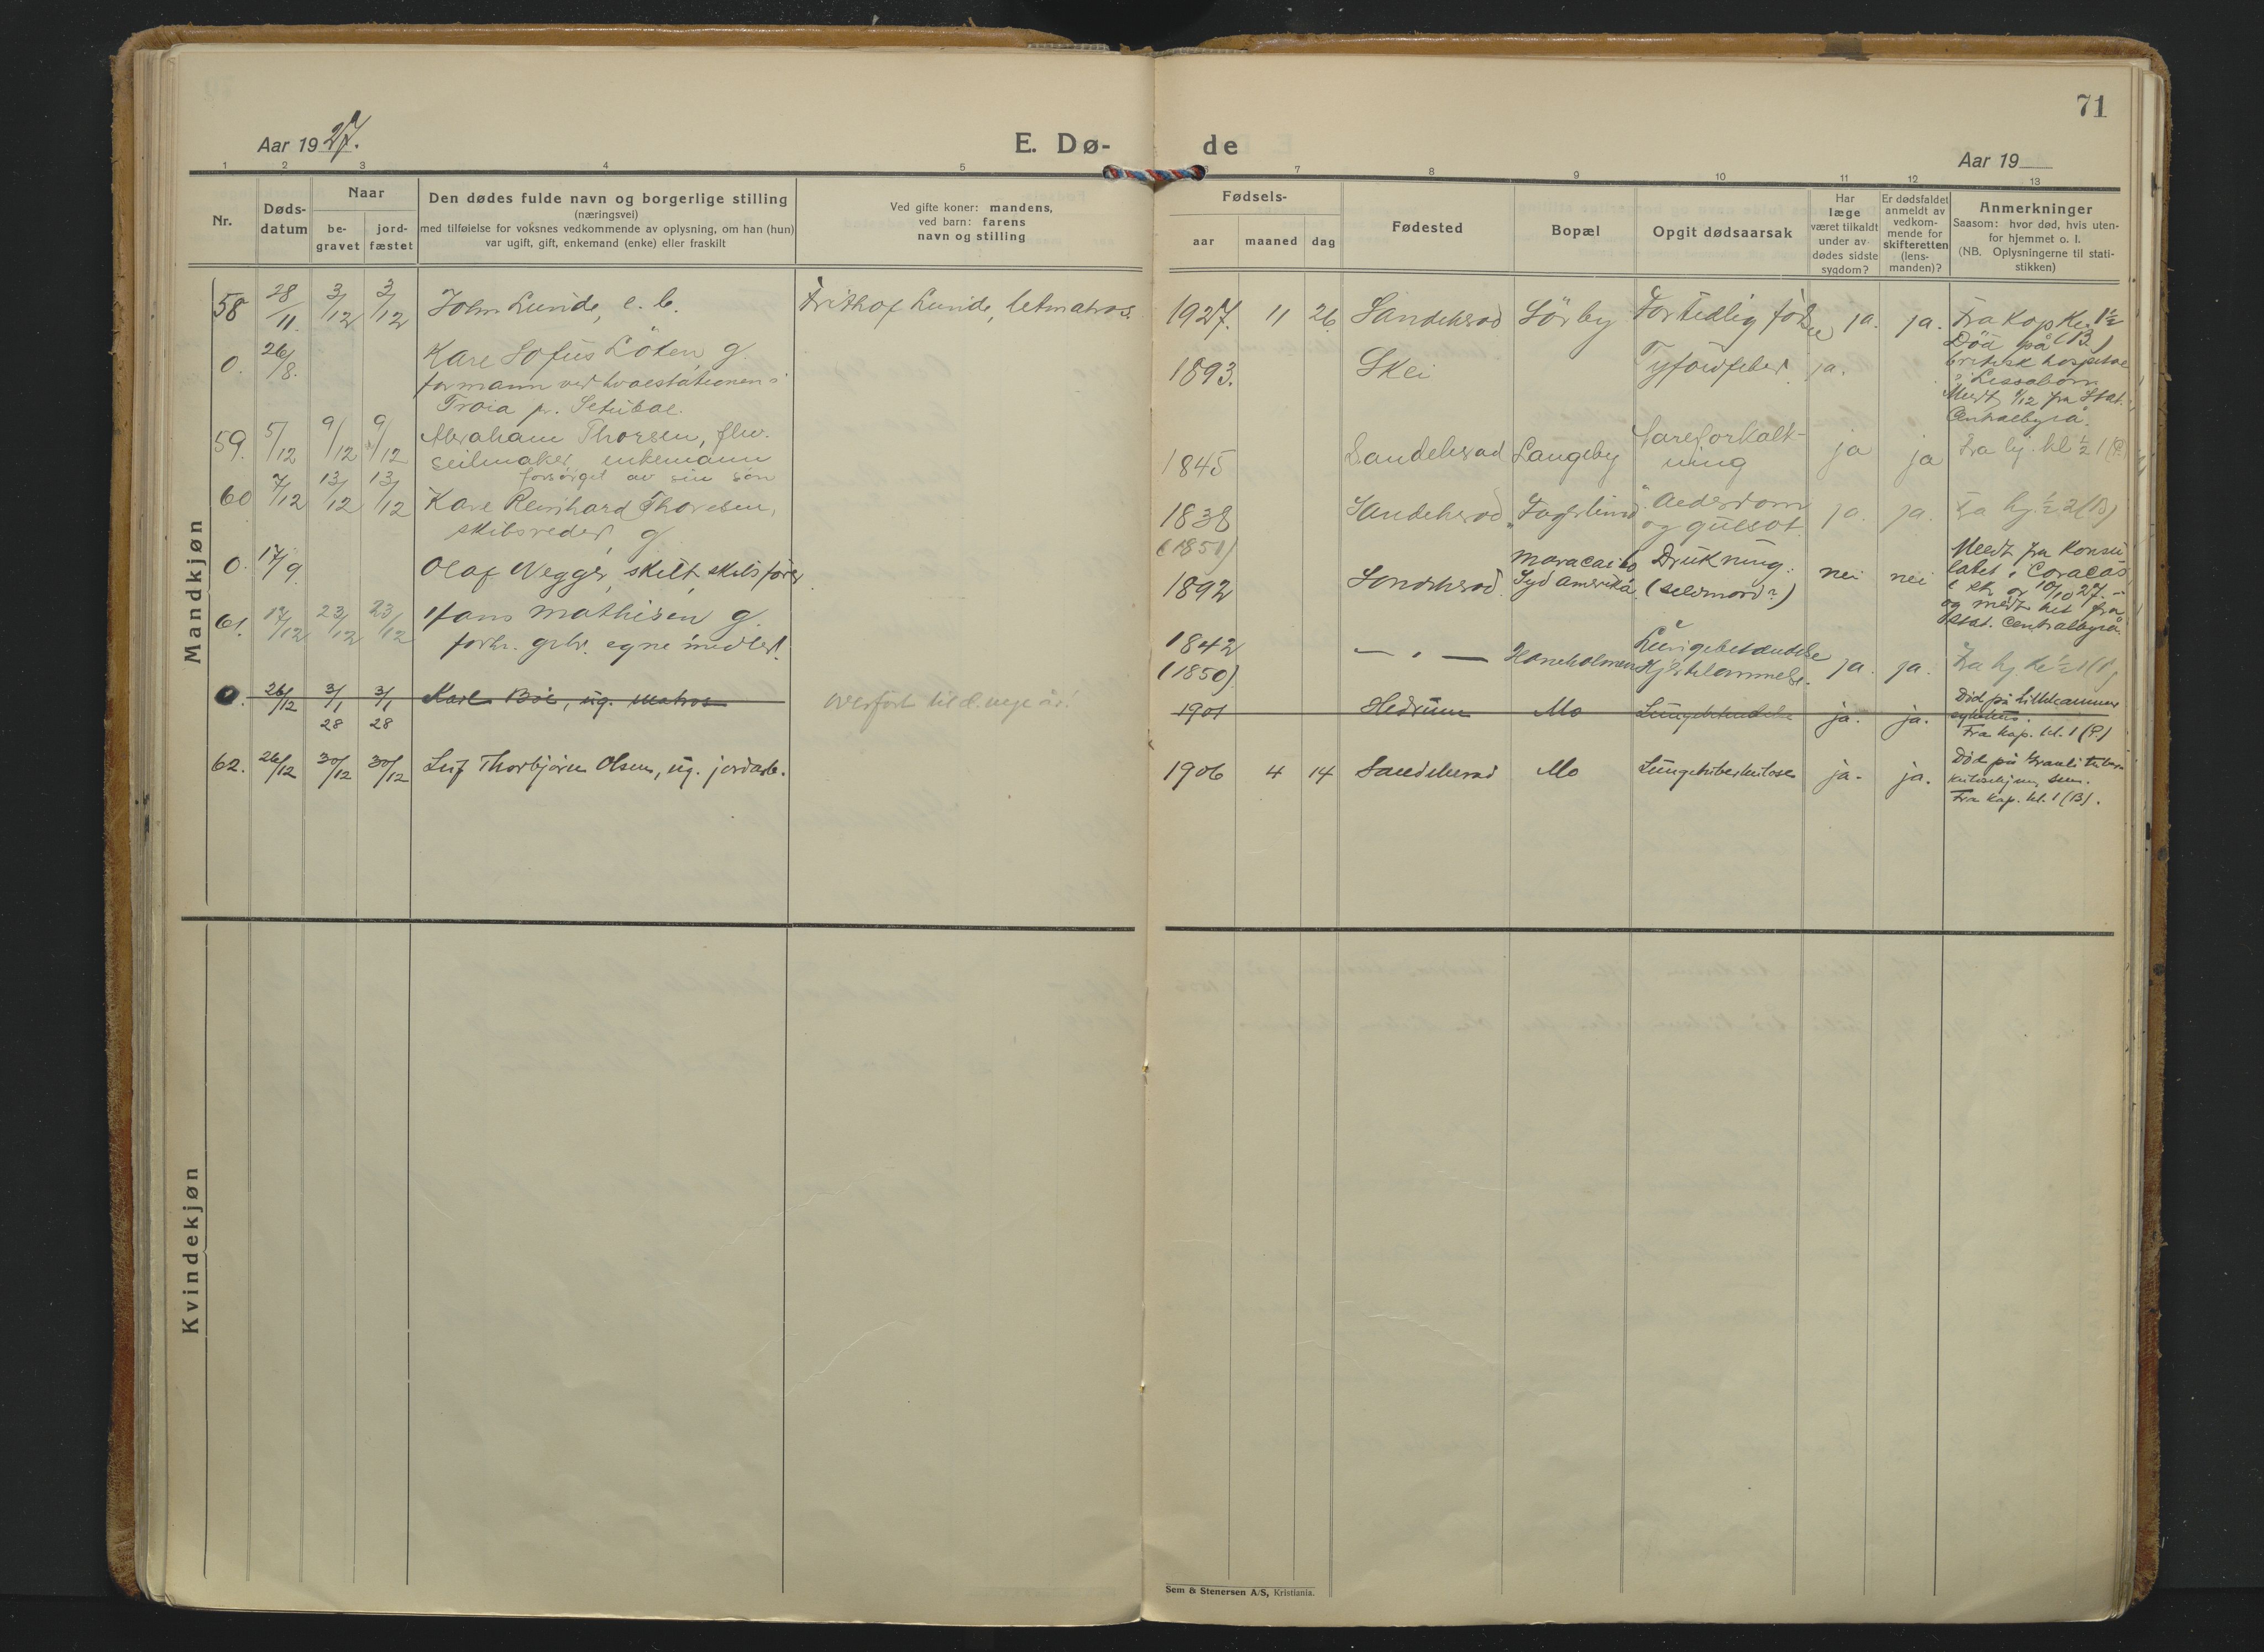 71
Aar 1927.
E. Dø-
de
Aar 19
1 2 3 4 5 7 8 9 10 11 12 13
Nr.
Døds-
datum
Naar
be-
gravet
jord-
fæstet
Den dødes fulde navn og borgerlige stilling
(næringsvei)
med tilføielse for voksnes vedkommende av oplysning, om han (hun)
var ugift, gift, enkemand (enke) eller fraskilt
Ved gifte koner: mandens,
ved barn: farens
navn og stilling
Fødsels-
aar
maaned
dag
Fødested
Bopæl
Opgit dødsaarsak
Har
læge
været tilkaldt
under av-
dødes sidste
sygdom?
Er dødsfaldet
anmeldt av
vedkom-
mende for
skifteretten
(lens-
manden)?
Anmerkninger
Saasom: hvor død, hvis uten-
for hjemmet o. l.
(NB. Oplysningerne til stati-
stikken)
Mandkjøn
58 28/11. 3/12 3/12 John Lunde, e. b. Frithof Lunde, letmatros. 1927. 11 26 Sandeherad Sörby For tidlig född ja. ja. Fra Kap Kl. 1½ (B.)
0. 26/8. Kare Sofus Löken g.
formann ved hvalstationen i
Troia pr. Setubal.
1893. Skei Tyfoidfeber ja.
Död på
britisk hospital
i Lissabon
Meldt /12 fra Stat.
Centralbyrå.
59. 5/12 9/12 9/12 Abraham Thorsen, fhv.
seilmaker, enkemann
forsörget av sin sön
1845 Sandeherad Langeby Åreforkalk-
ning
ja ja Fra hj. kl ½ 1 (P.
60 7/12 13/12 13/12 Karl Reinhard Thoresen,
skibsreder g
1838
(1851)
Sandeherad Fagerlund Alderdom
og gulsot.
ja. ja. Fra hj. ½ 2 (B)
0. 17/9. Olaf Wegger, skilt, skibsförer
1892 Sandeherad. Maracaibo
Syd Amerika.
Drukning.
(selvmord?)
nei nei
Meldt fra Konsu
latet i Caracas
i skr. av 10/10 27. -
og meldt hit fra
Stat. Centralbyrå.
61. 17/12 23/12 23/12 Hans Mathisen g.
forh. gbr. egne midler.
1842
(1850)
— " — Haneholmen Lungebetændelse
Hjertelammelse.
ja. ja. Fra hj. kl ½ 1 (P)
0. 26/12 3/1 28 3/1 28 Karl Bøe, ug. matros overfört til d. nye år! 1901 Hedrum Mo Lungebetendelse ja. ja. Död på Lillehammer
sykehus.
Fra Kap. kl. 1 (P.)
62. 26/12 30/12 30/12 Leif Thorbjörn Olsen, ug. jordarb. 1906 4 14 Sandeherad Mo Lungetuberkulose ja. ja. Död på Granli tuber-
kulosehjem, Sem.
Fra Kap. kl. 1 (B).
Kvindekjøn
Sem & Stenersen A/S, Kristiania.